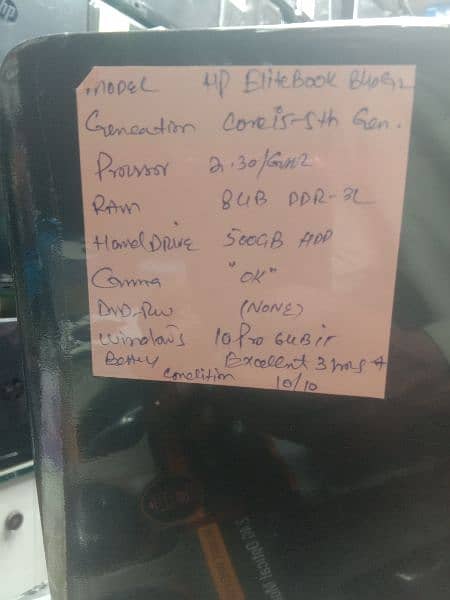 MODEL HP EliteBook 840G2
Geneation Corei5-5th Gen.
Prossor 2.30/GHZ
RAM 8GB DDR-3L
Hand DRIVE 500GB HDD
Camra "OK"
DVD-RW (NONE)
Windows 10 Pro 64Bit
Bettry Excellent 3 hours +
condition 10/10